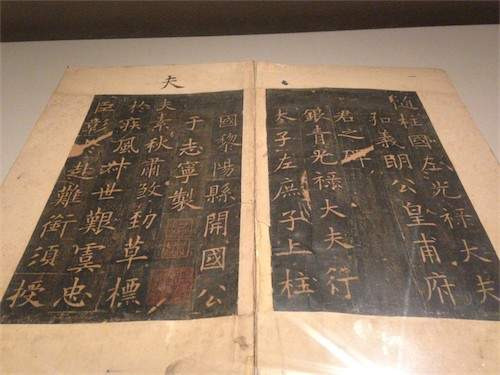 随柱國左光禄大夫
弘義明公皇甫府
君之碑
銀青光禄大夫行
太子左庶子上柱
國黎陽縣開國公
于志寧製
夫
夫素秋肅煞勁草標
於疾風叶世艱虞忠
臣彰赴難銜須授